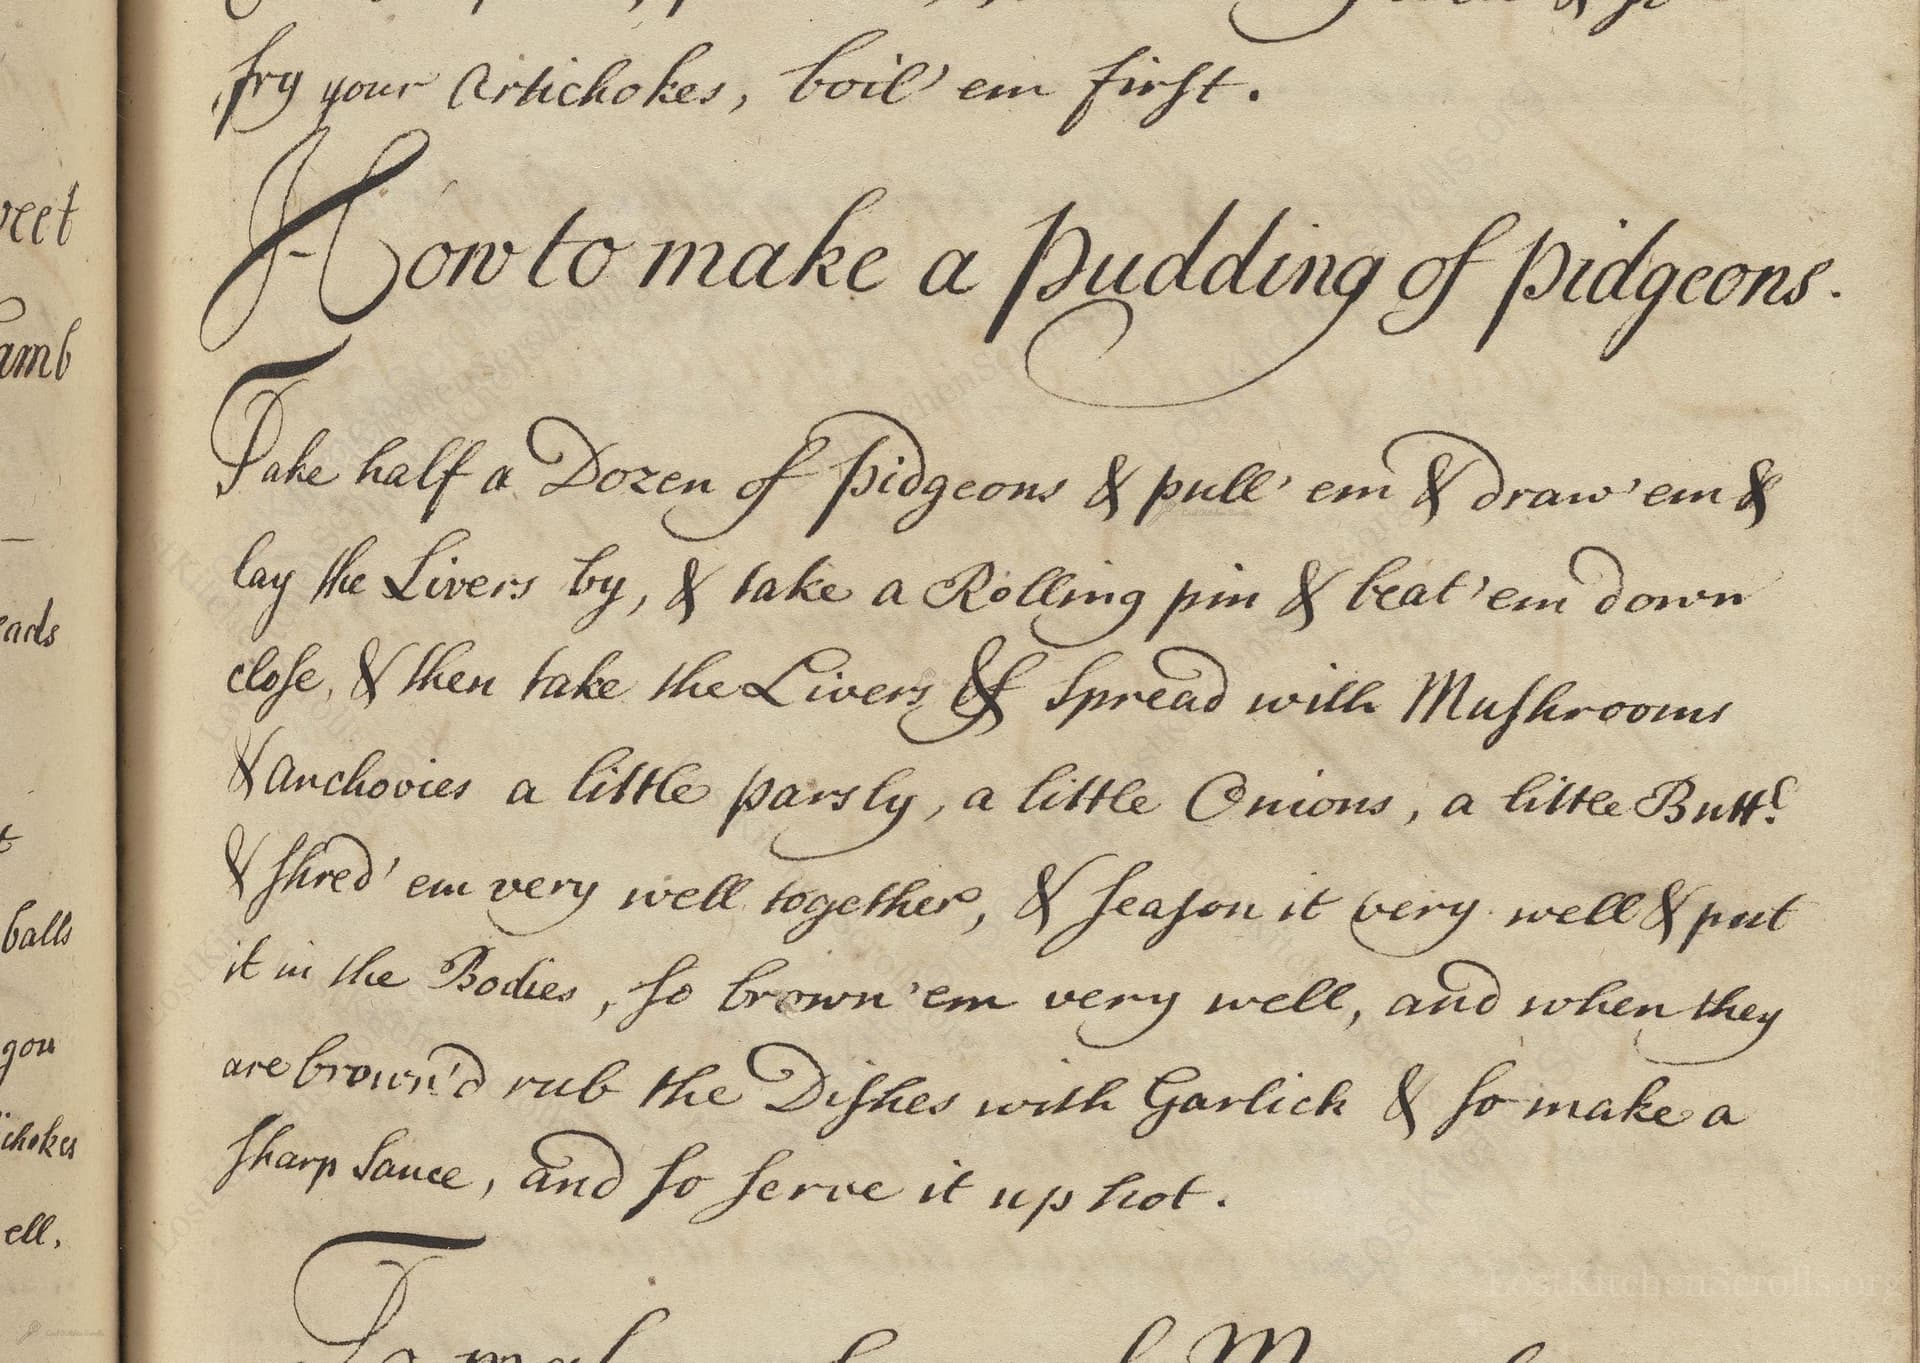 fry your Artichokes, boil'em first.
How to make a pudding of pidgeons.
Take half a Dozen of pidgeons & pull'em & draw'em &
lay the Livers by, & take a Rolling pin & beat'em down
close, & then take the Livers & Spread with Mushrooms
& anchovies a little parsly, a little Onions, a little Buttr
& shred'em very well together, & season it very well & put
it in the Bodies, so brown'em very well, and when they
are brown'd rub the Dishes with Garlick & so make a
sharp Sauce, and so serve it up hot.
balls
you
ell,
LostKitchenScrolls.org